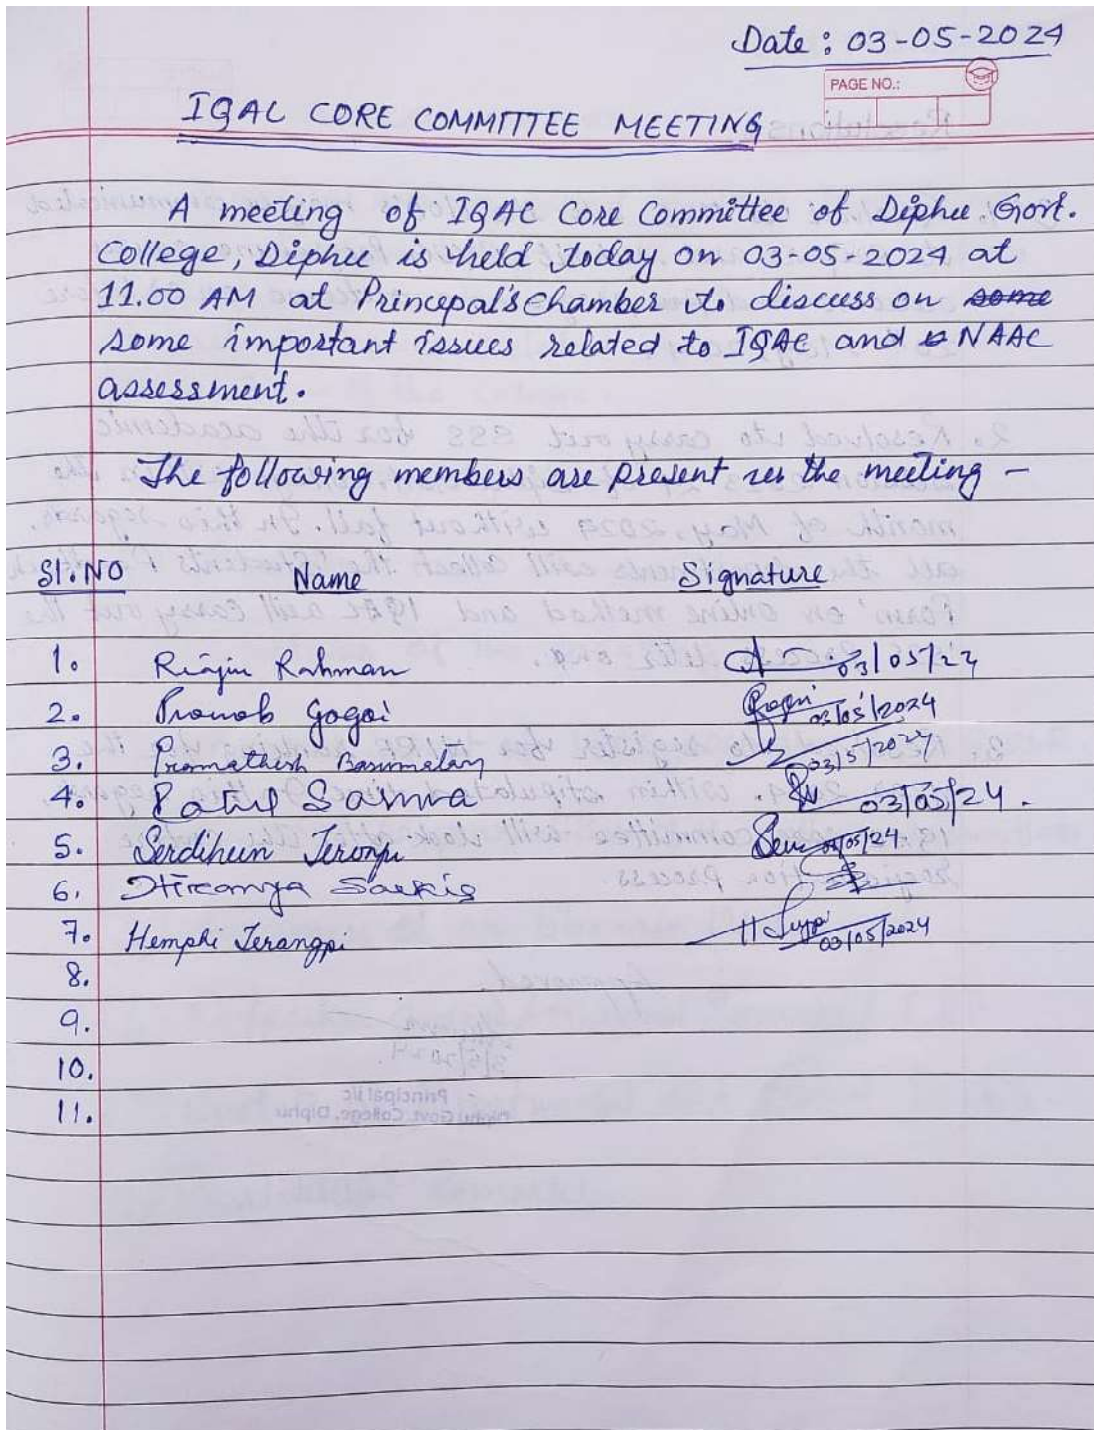 Date : 03-05-2024
PAGE NO.:
IQAC CORE COMMITTEE MEETING
A meeting of IQAC Core Committee of Diphu Govt.
College, Diphu is held today on 03-05-2024 at
11.00 AM at Princepal's Chamber to discuss on some
some important issues related to IQAC and NAAC
assessment.
The following members are present in the meeting –
Sl. NO Name Signature
1. Riajin Rahman 03/05/24
2. Pranab Gogoi Gogoi 03/05/2024
3. Pramathesh Basumatary 03/5/2024
4. Ratul Sarma 03/05/24.
5. Serdihun Teronpi 03/05/24
6.
7. Hemphi Terangpi 03/05/2024
8.
9.
10.
11.